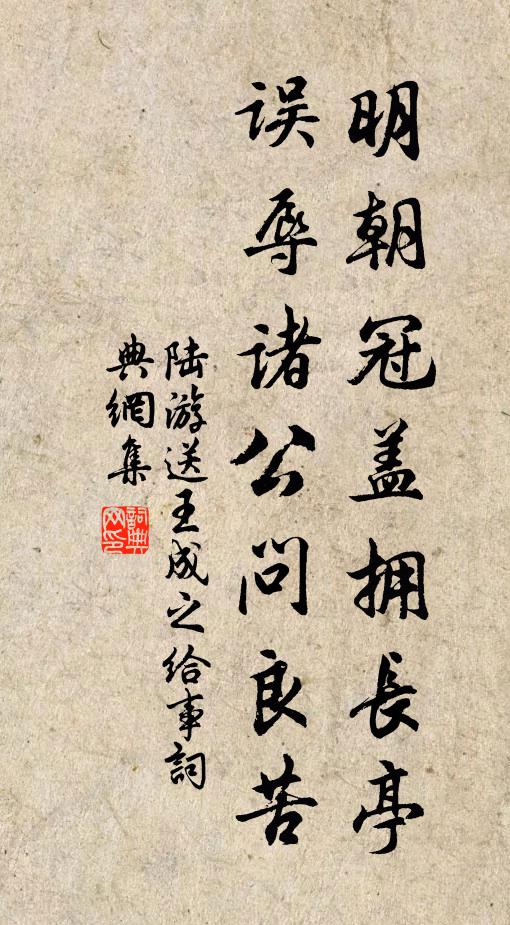 明朝冠盖拥長亭
误辱诸公问良苦
陆游送王成之给事詞
典網集
詞典网印